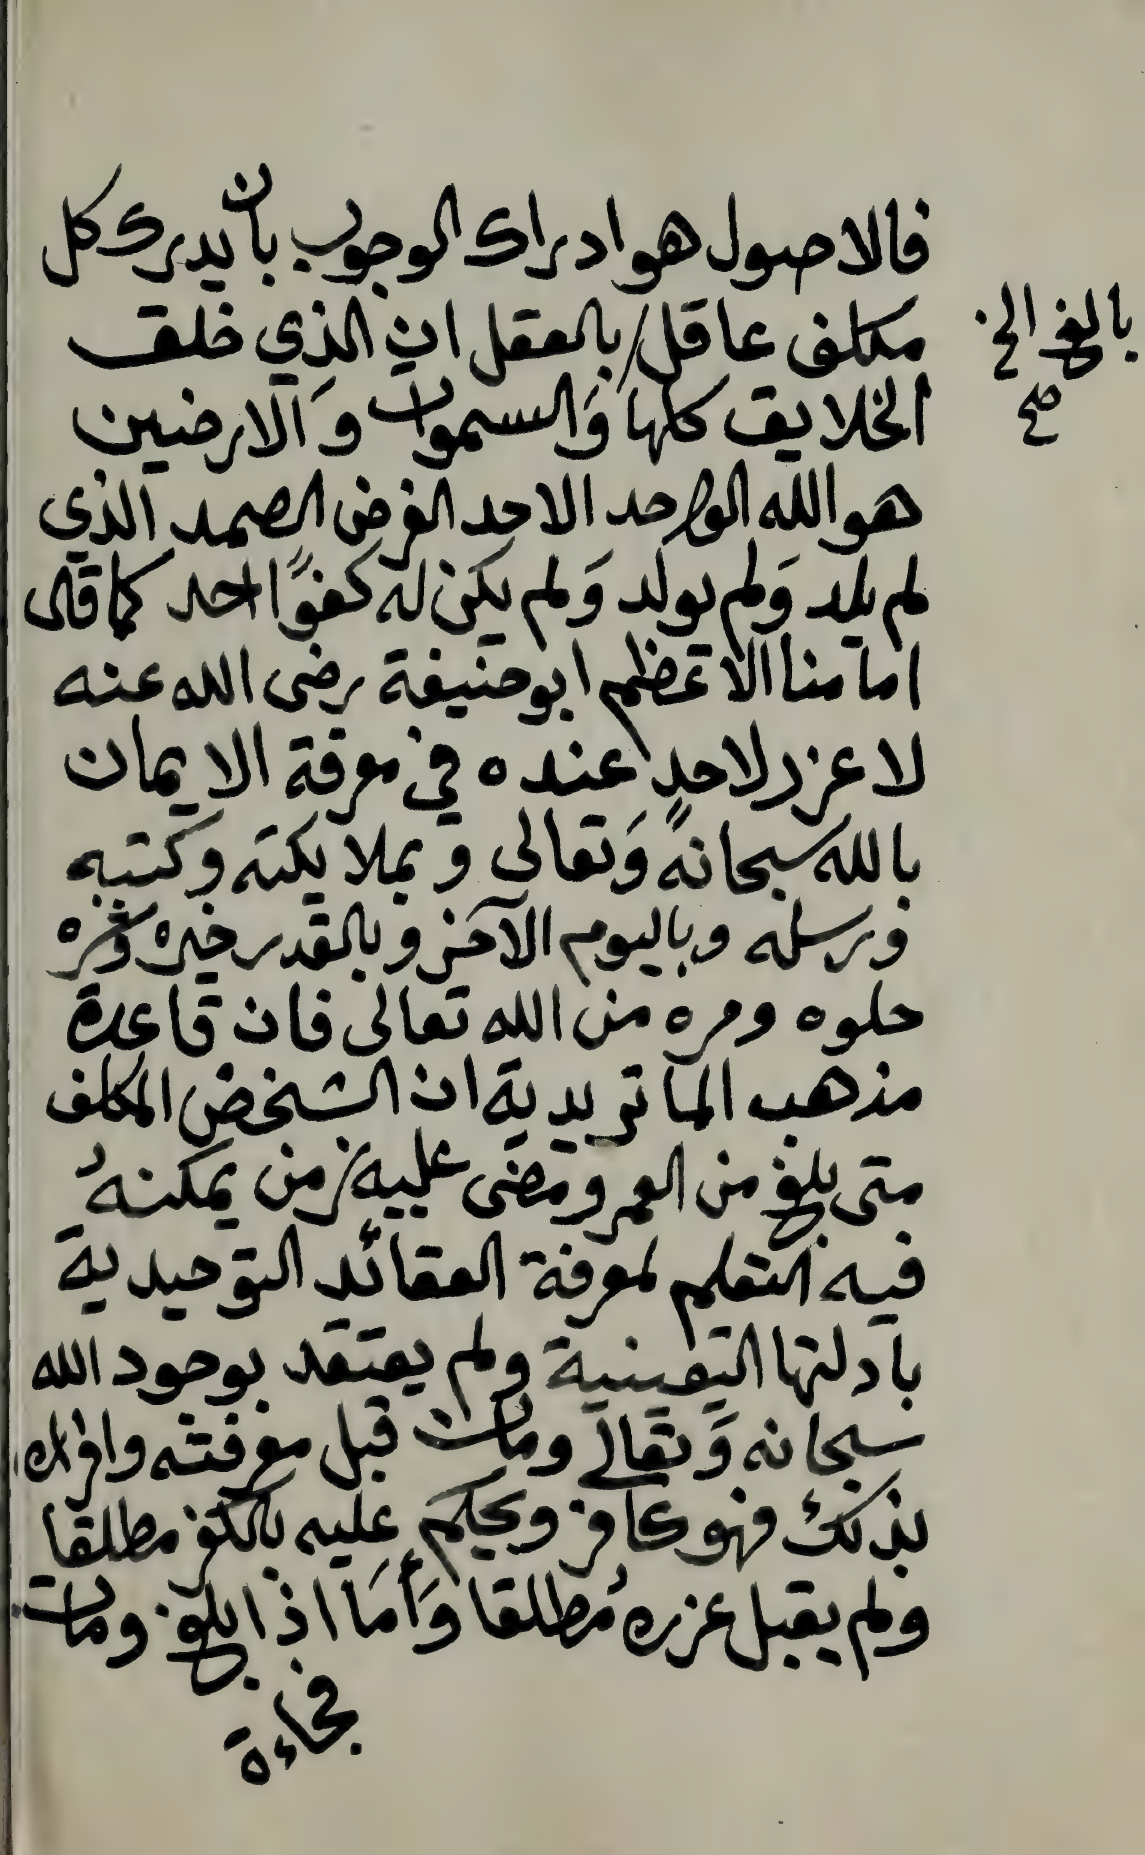 فالاصول هو ادراك الوجوب بان يدرك كل
مكلف عاقل بالعقل ان الذي خلق
بالغ الخ
صح
الخلايق كلها وَالسموات وَالارضين
هو الله الواحد الاحد الفرض الصمد الذي
لم يلد وَلم يولد وَلم يكن له كفوًا احد كما قال
امامنا الاعظم ابو حنيفة رضى الله عنه
لا عزر لاحدٍ عنده في معرفة الايمان
بالله سبحانهً وَتعالى و بملايكته وكتبه
ورسله وباليوم الآخر وبالقدر خيره وشره
حلوه ومره من الله تعالى فان قاعدة
مذهب الماتريدية ان الشخض المكلف
متى بلغ من العمر ومضى عليه زمن يمكنهُ
فيه التعلم لمعرفة العقائد التوحيدية
بادلتها اليقينية ولم يعتقد بوجود الله
سبحانه وَتعالى ومات قبل معرفته واقراره
بذلك فهو كافر ويحكم عليه بالكفر مطلقا
ولم يقبل عزره مُطلقا وَأمَا اذا بلغ ومات
فجاءة